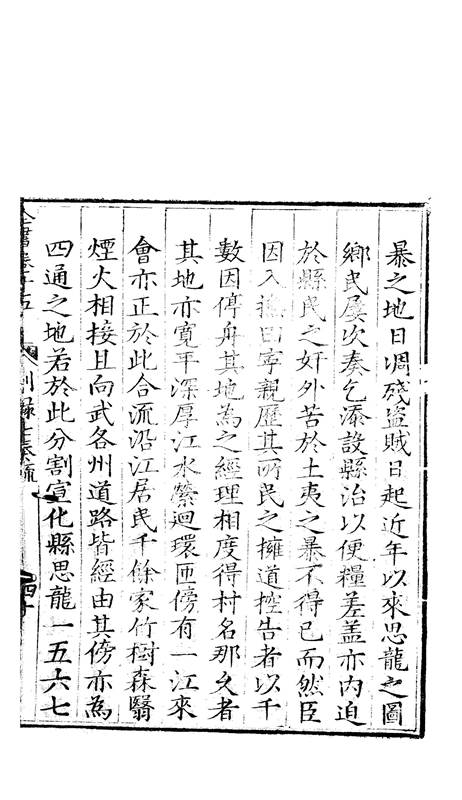 暴之地日凋殘盜賊日起近年以來思龍之圖
鄉民屢次奏乞添設縣治以便糧差蓋亦內迫
於縣民之奸外苦於土夷之暴不得已而然臣
因入撫田寧親歷其所民之擁道控告者以千
數因停舟其地為之經理相度得村名那久者
其地亦寬平深厚江水縈迴環匝傍有一江來
會亦正於此合流沿江居民千餘家竹樹森翳
煙火相接且向武各州道路皆經由其傍亦為
四通之地若於此分割宣化縣思龍一五六七
全書卷十五 別錄七奏疏 四十